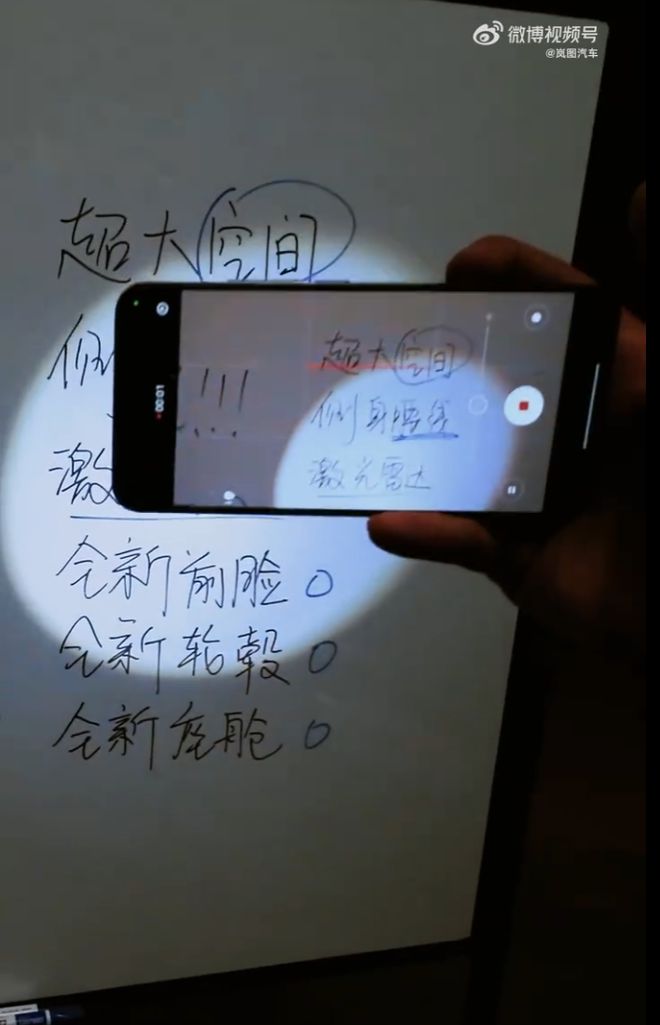 微博视频号
@岚图汽车
超大空间
侧
激
全新前脸 0
全新轮毂 0
全新座舱 0
!!!
超大空间
侧身腰线
激光雷达